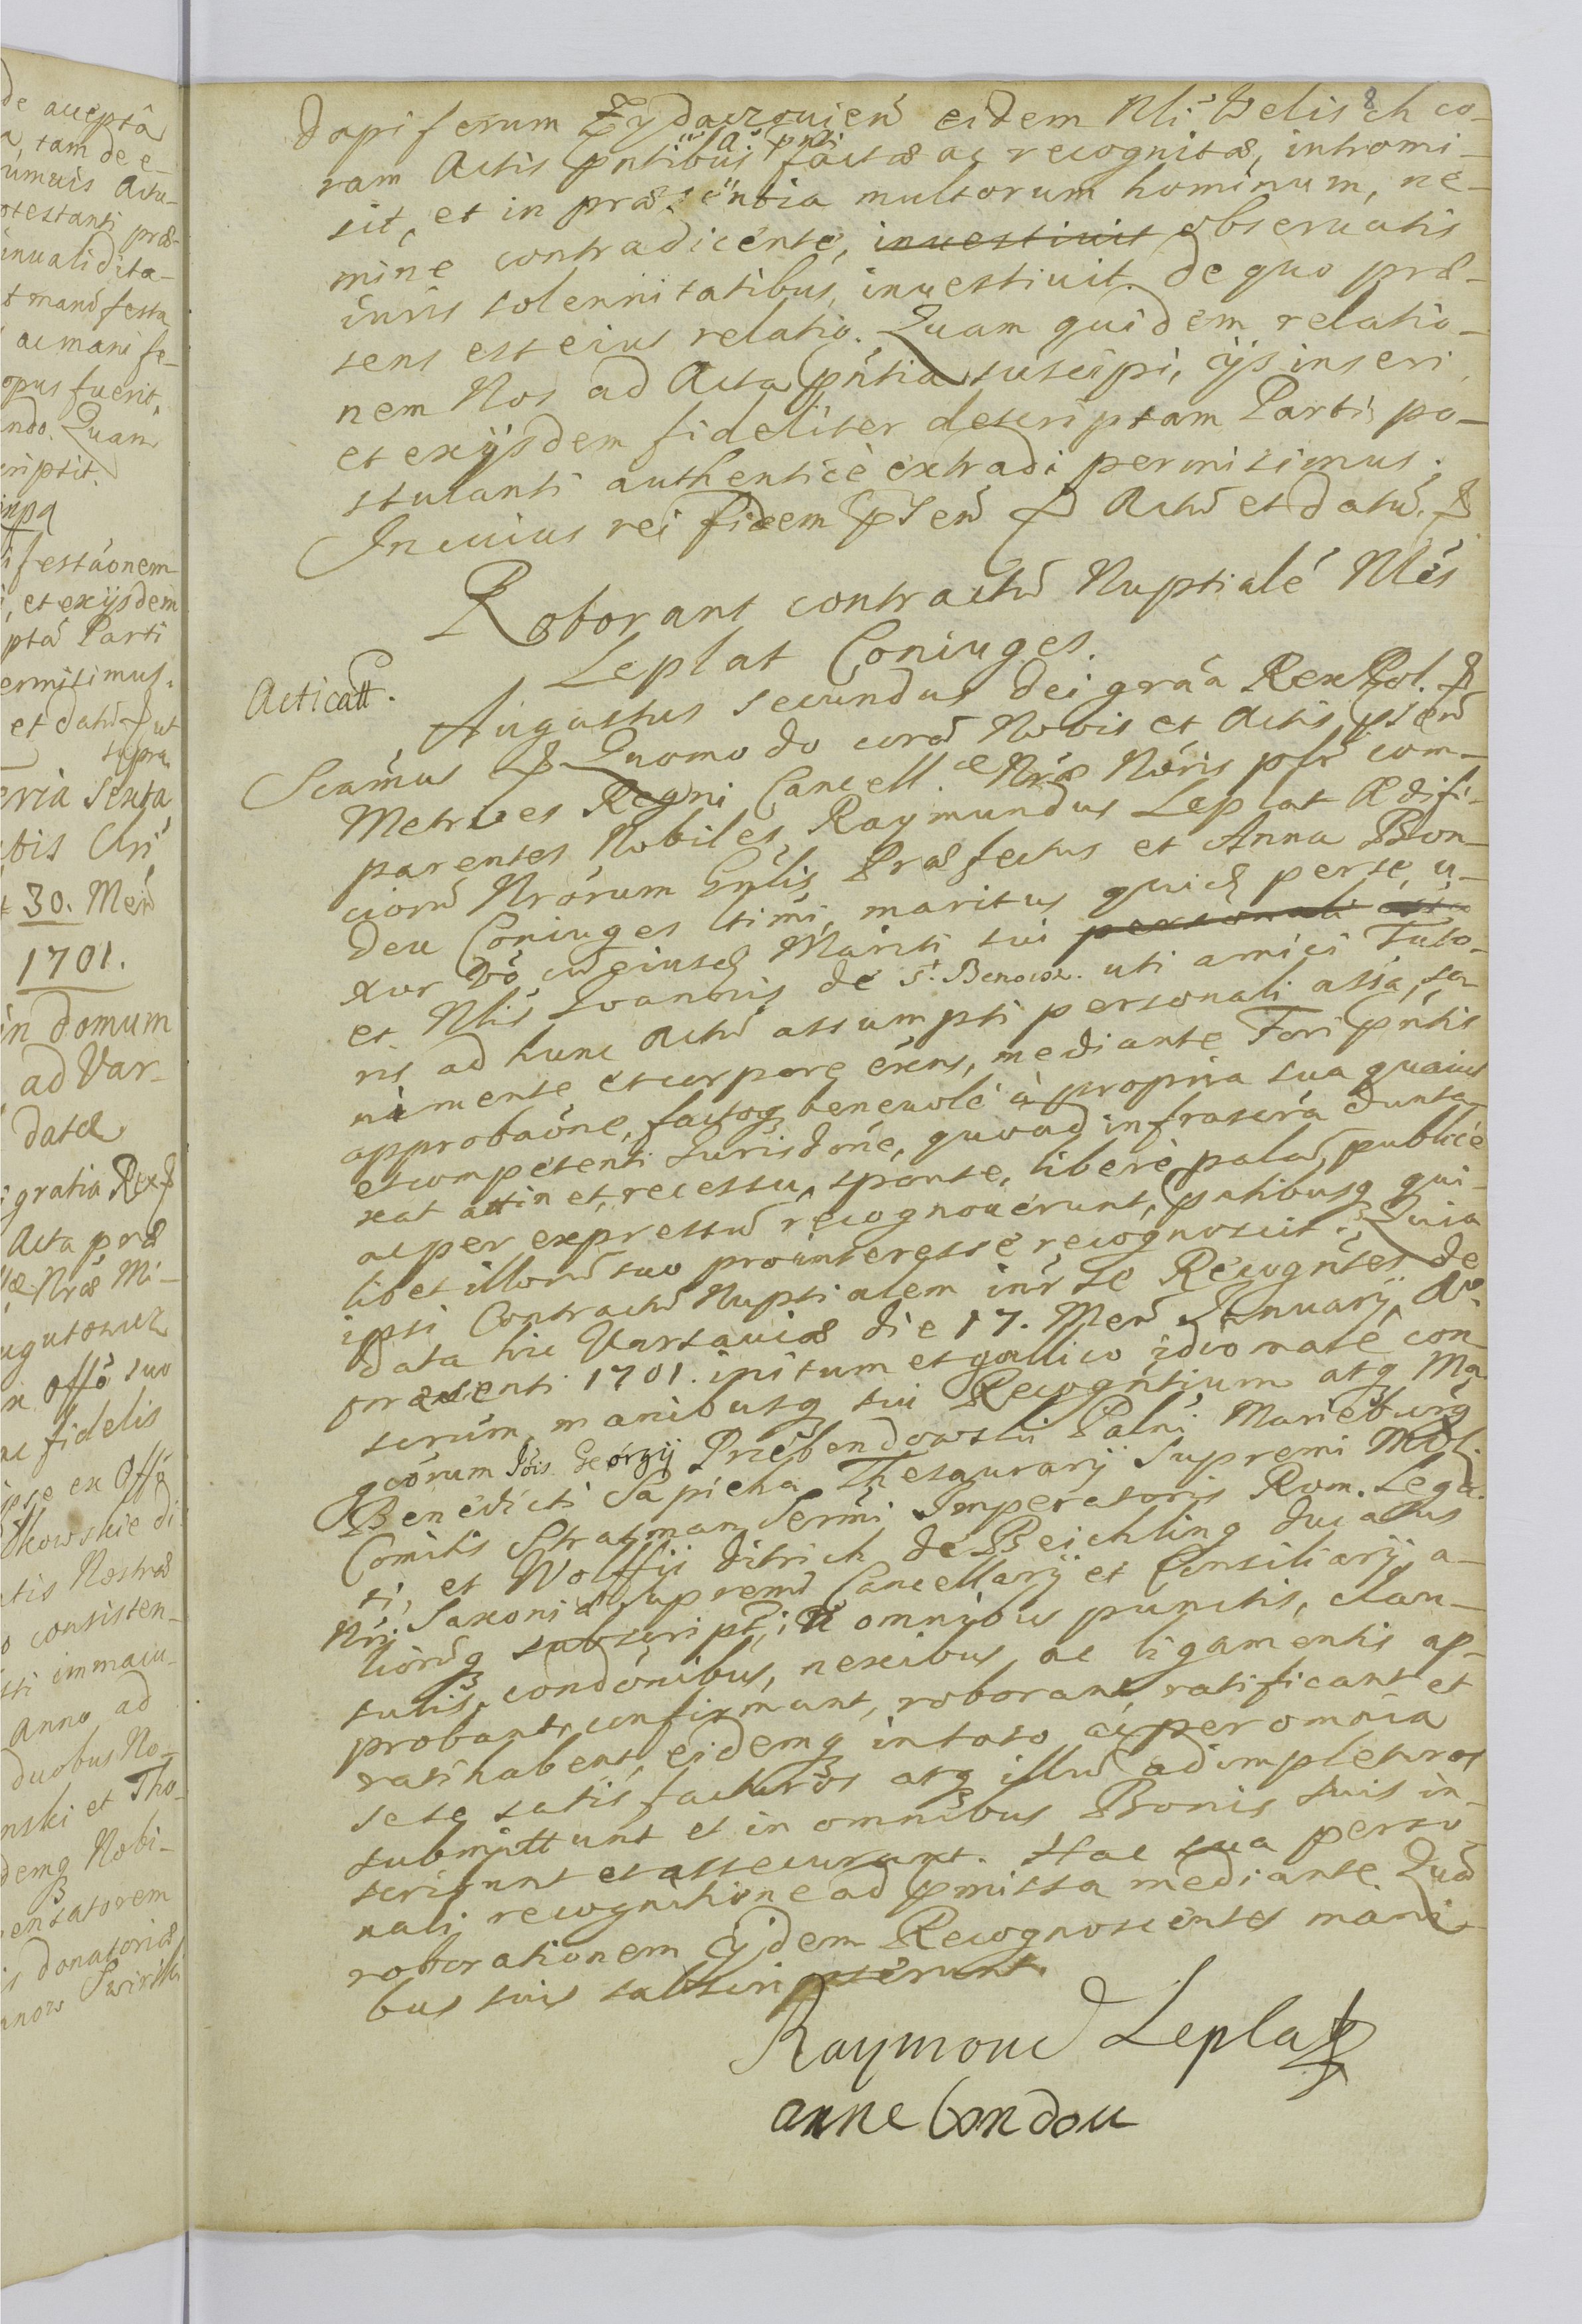 de acceptâ
a, tam de e-
umuis Actu-
otestanti præ-
inualidita-
t manifesta
ac manife-
opus fuerit,
ndo. Quam
criptit.
ifestaonem
, et exijsdem
ptã Parti
ermisimus.
et datũ ut
supra
eria Sexta
bis Chri
30. Men̄
1701.
in domum
ad Var-
datæ
i gratia Rex
Acta præ
Nræ Mi-
x Offo suo
ac fidelis
ipse ex Offo
tkowskie di
tis Nostræ
o consisten-
sti immacu-
Anno ad
duobus No-
nski et Tho-
demq Nobi-
ensatorem
is donatoriæ
8
dapiferum Zydaczouien̄ eidem Nli Welisch co-
ram Actis pntibus a. pnti factæ ac recognitæ, intromi-
sit, et in præsentia multorum hominum, ne-
mine contradicente, inuestiuit obseruatis
iuris solennitatibus, inuestiuit. De quo præ-
sens est eius relatio. Quam quidem relatio-
nem Nos ad Acta pntia suscipi, ijs inseri
et exijsdem fideliter descriptam Parti po-
stulanti authenticè extradi permisimus.
In cuius rei fidem pṡen̄ Actũ et datũ.
Roborant contractũ Nuptialé Nles
Leplat Coniuges.
Acticatt.
Augustus secundus Dei graã Rex Pol.
Scamus Quomodo corã Nobis et Actis pṡen̄
Metrices Regni Cancell. Nræ Noris psr com-
parentes Nobiles Raymundus Leplat Ædifi-
ciorũ Nrorum Gnlis Præfectus et Anna Bon-
deu Coniuges ltimi, maritus quid perse, u-
xor Vo cũ eiusd Mariti sui personali
et Nlis Joannis de St. Benoist uti amici Tuto-
ris ad hunc Actũ assumpti personali assa, sa-
ni mente et corpore exens, mediante Fori pntis
approbaone, factoq beneuolé à propria sua quauis
et competenti Jurisdone, quoad infrascra dunta-
xat attin et, recessu, sponte, liberè, palã, publicè
ac per expressũ recognouerunt, pntibusq qui-
libet illorũ suo pro interesse recognoscit. Quia
ipsi Contractũ Nuptialem inr se Recogntes de
data hic Varsauiæ die 17. Men̄ January Ao
præsenti 1701. initum et gallico idiomate con
scrúm, manibusq sui Recogntium atq Ma-
gcorum Jois Georgij Przebendowski Palni Marieburg
Benedicti Sapieha Thesaurarij Supremi MDL.
Comitis Stratman Sermi Imperatoris Rom. Lega-
ti, et Wolffij Ditrich de Beichling Ducatus
Nri Saxoniæ Supremi Cancellarij et Consiliarij a-
liorũq subscript, in omnibus punctis, clau-
sulis, condonibus, nexibus ac ligamentis ap-
probant, confirmant, roborant, ratificant et
ratihabent, eidemq in toto ac per omnia
sese satisfacturos atq illud adimpleturos
submittunt et in omnibus Bonis suis in-
scribunt et assecurant. Hac sua perso-
nali recognitione ad pmissa mediante. Quã
roborationem ijdem Recognoscentes mani-
bus suis subscripserunt.
Raymond Leplat
anne bondou